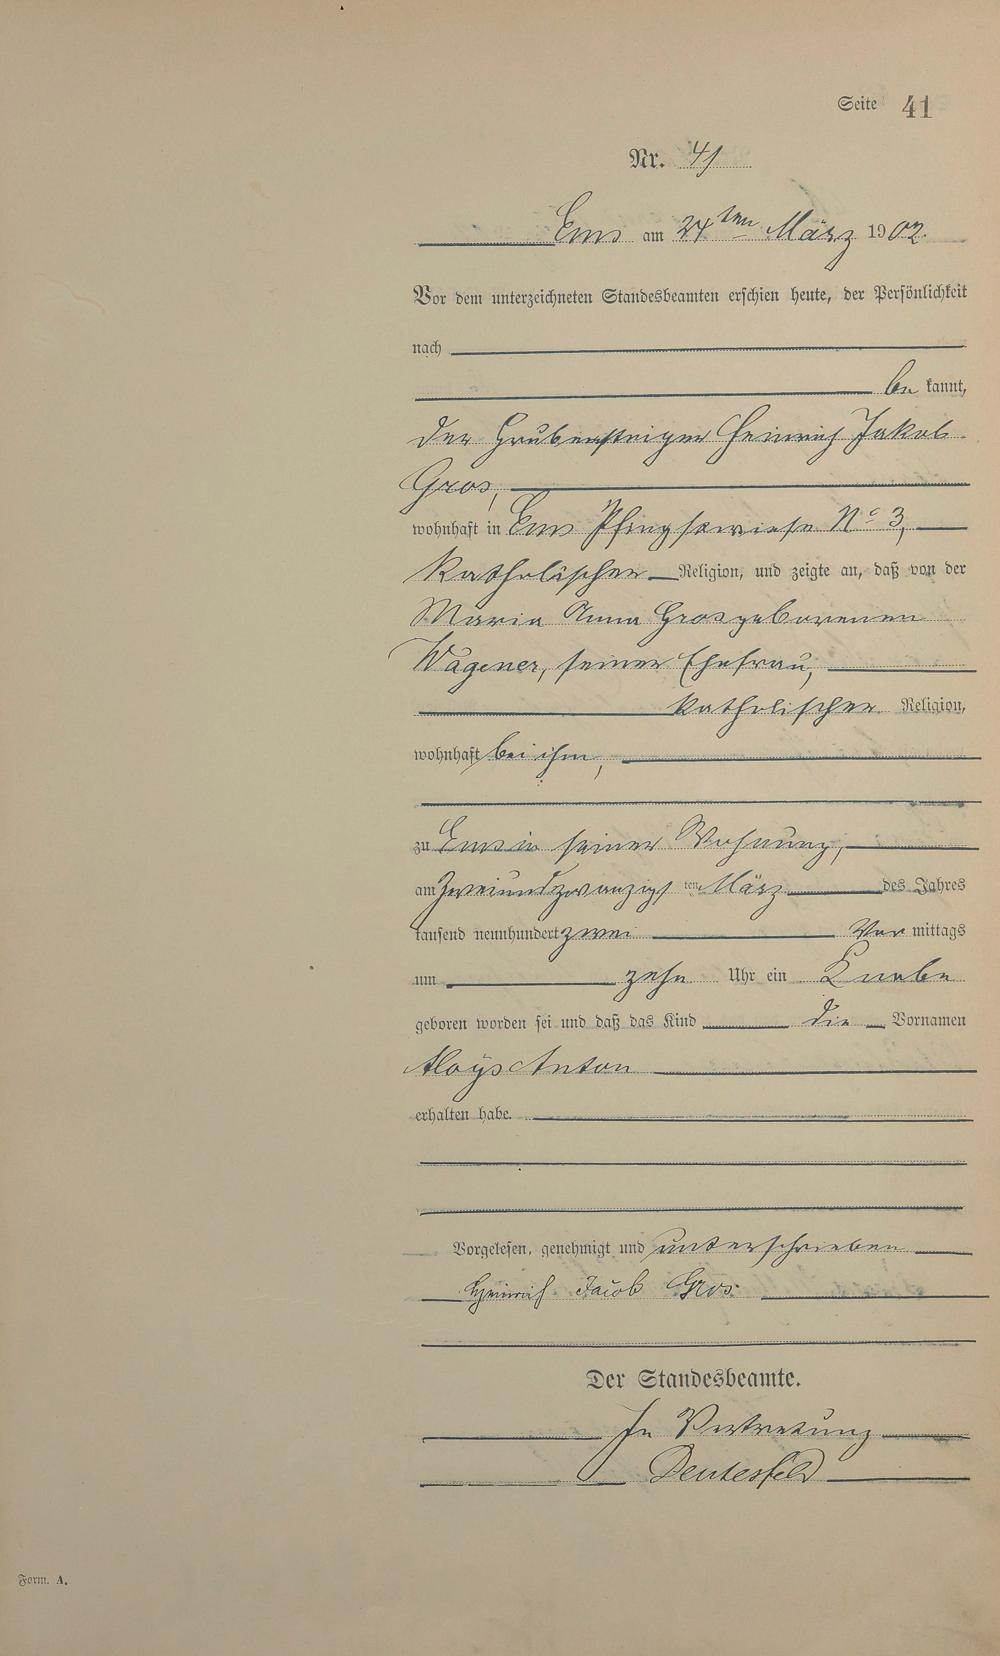 Seite 41
Nr. 41
Ems am 24ten März 1902.
Vor dem unterzeichneten Standesbeamten erschien heute, der Persönlichkeit
nach
be kannt,
der Grubensteiger Heinrich Jakob
Gros,
wohnhaft in Ems Pfingstwiese No 3,
katholischer Religion, und zeigte an, daß von der
Maria Anna Gros geborenen
Wagener, seiner Ehefrau,
katholischer Religion,
wohnhaft bei ihm,
zu Ems in seiner Wohnung,
am Zweiundzwanzigsten März des Jahres
tausend neunhundert zwei Vor mittags
um zehn Uhr ein Knabe
geboren worden sei und daß das Kind die Vornamen
Aloÿs Anton
erhalten habe.
Vorgelesen, genehmigt und unterschrieben
Heinrich Jacob Gros.
Der Standesbeamte.
In Vertretung
Form. A.